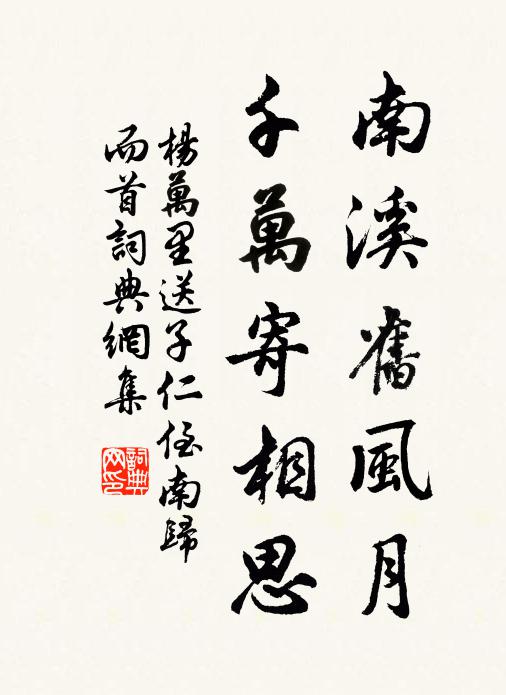 南溪舊風月
千萬寄相思
楊萬里送子仁侄南歸
兩首詞典網集
詞典
网印